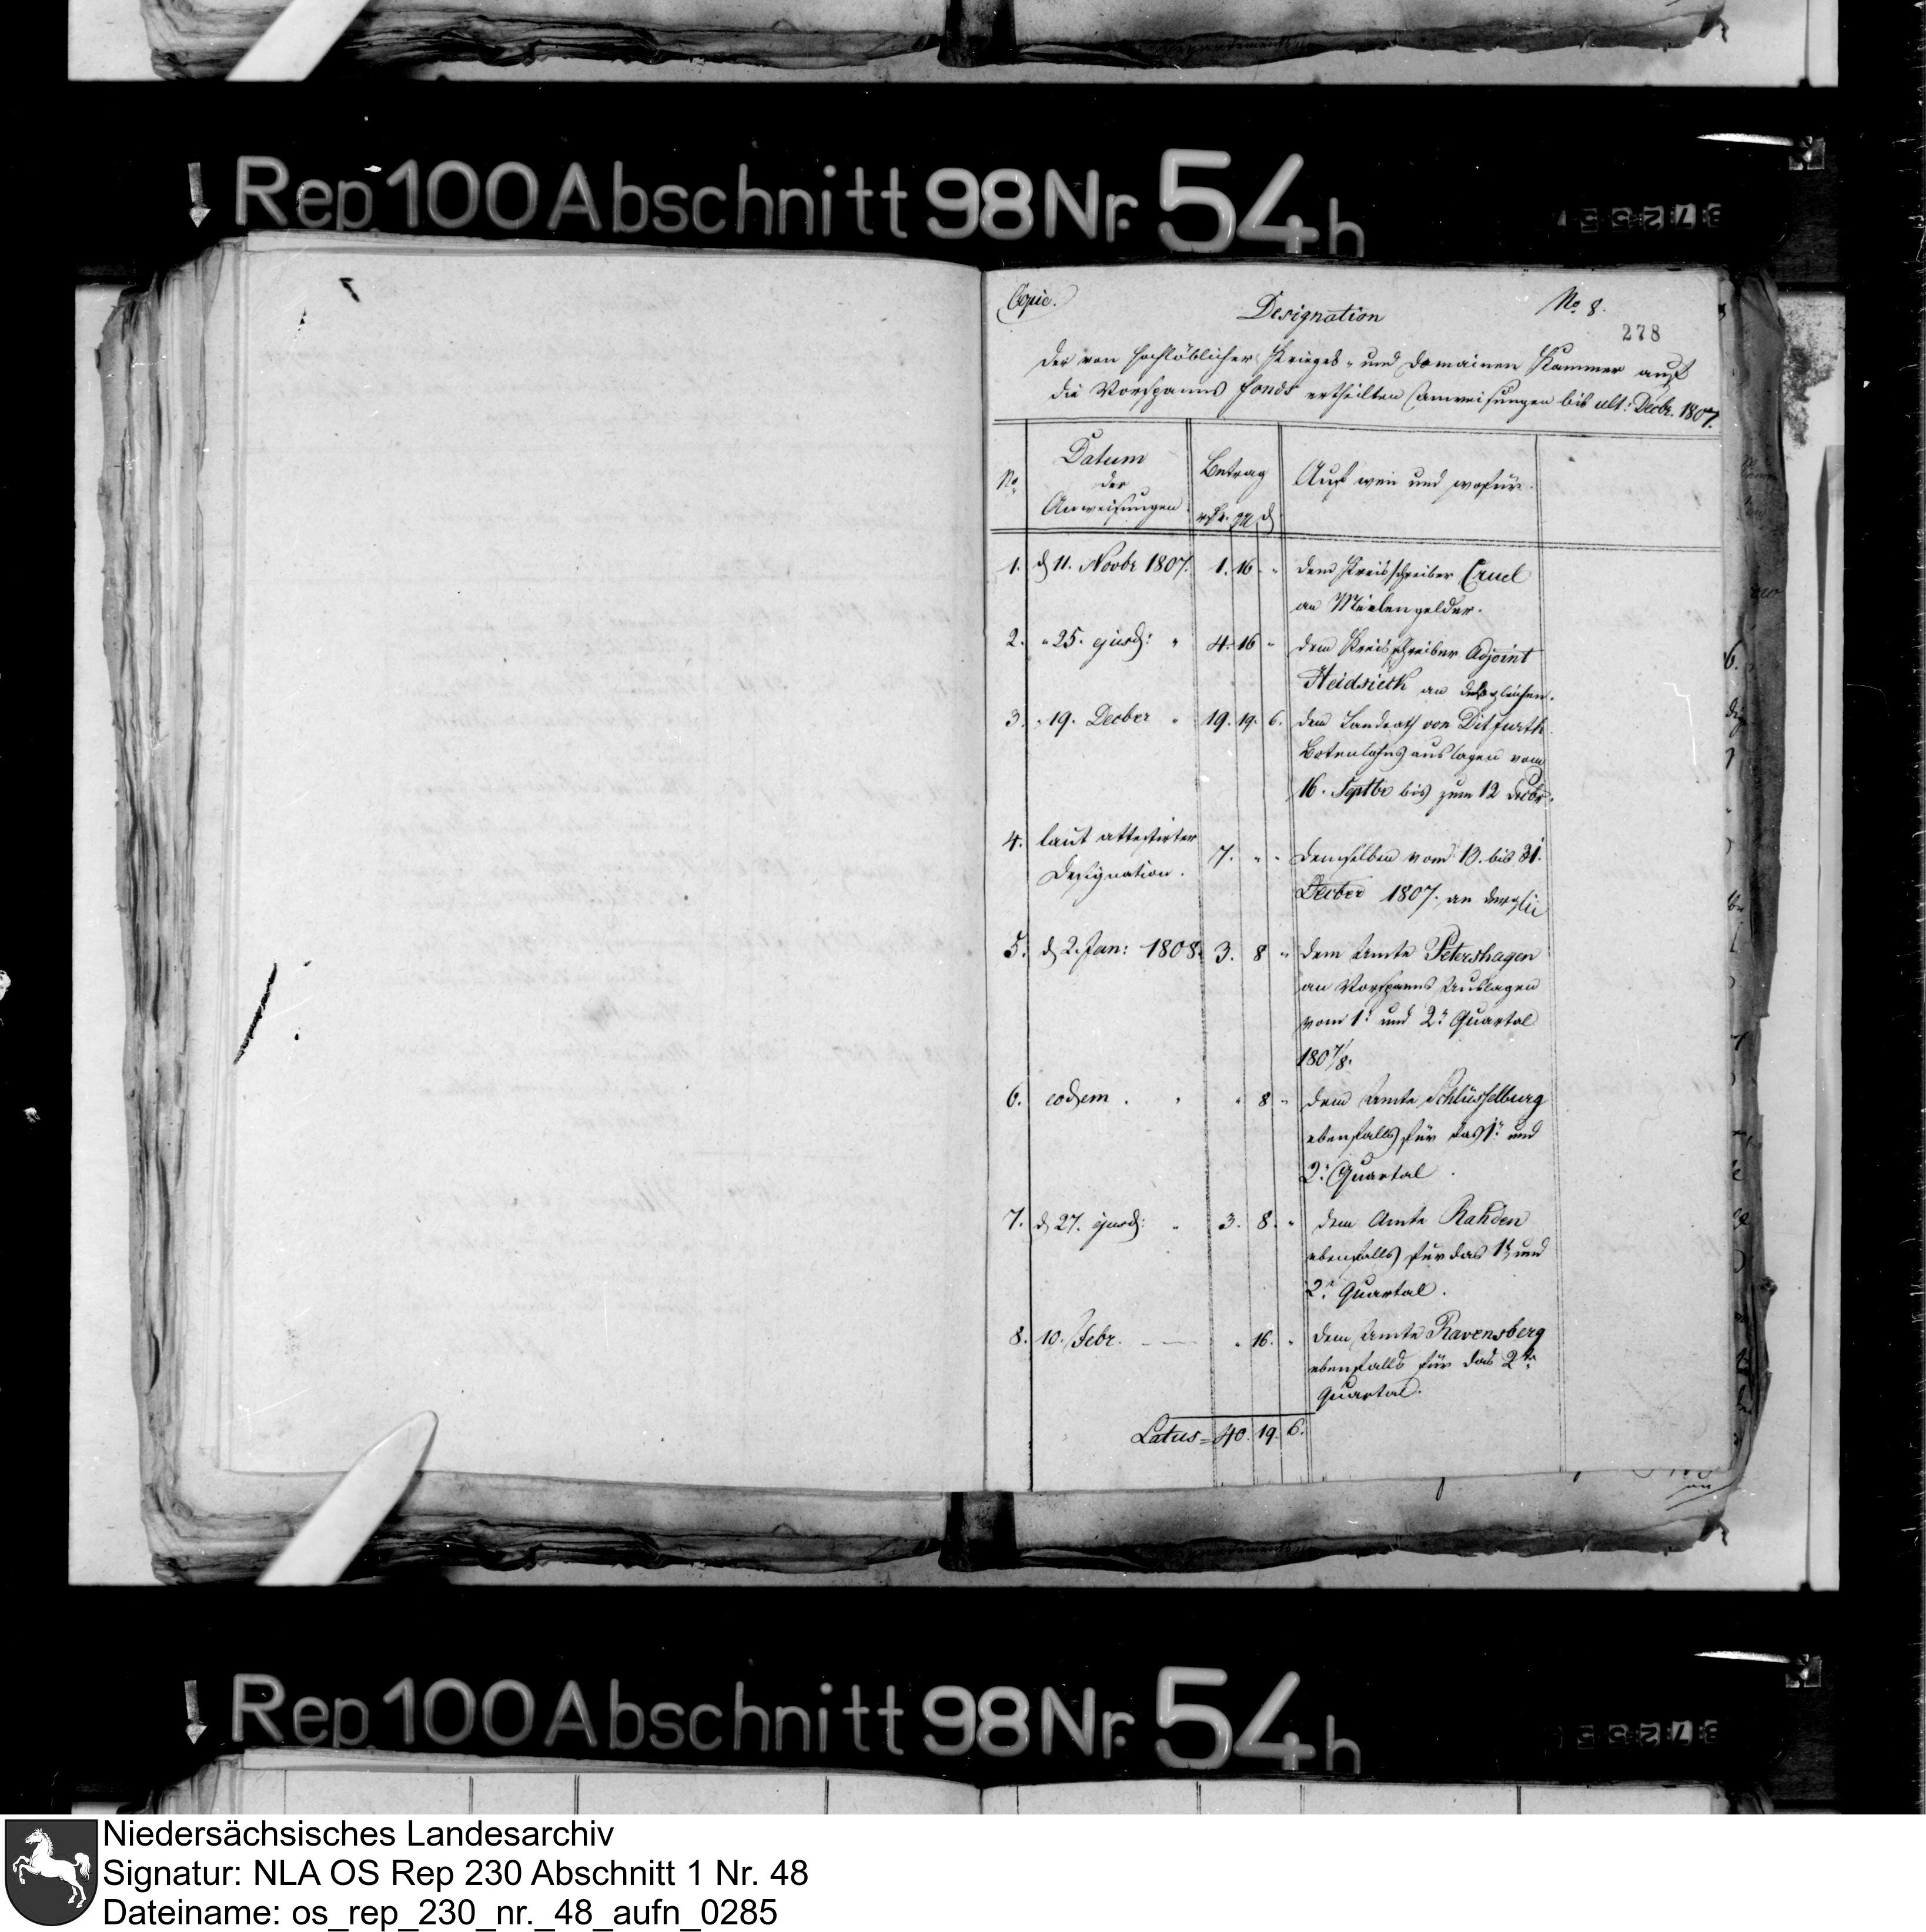 Rep. 100 Abschnitt 98 Nr. 54 h
Copie.
Designation
No. 8.
278
der von hochlöblicher Krieges- und Domainen Kammer auf
die Vorspanns fonds ertheilten Anweisungen bis ult: Decbr. 1807.
No.
Datum
der
Anweisungen
Betrag
rthr. gg d
Auf wen und wofür.
1. d 11. Novbr 1807. 1. 16 " dem Kreisschreiber Cruel
an Meilengelder.
2. " 25. ejusd: " 4. 16 " dem Kreisschreiber Adjoint
Heidsieck an dergleichen.
3. " 19. Decber " 19. 19. 6. dem Landrath von Ditfurth
Botenlohns auslagen vom
16. Septbr bis zum 12 Decbr.
4. laut attestirter
Designation. 7. " " demselben vom 13. bis 31.
Decber 1807. an dergl.
5. d 2. Jan: 1808. 3. 8 " dem Amte Petershagen
an Vorspanns Auslagen
vom 1t. und 2t. Quartal
1807/8.
6. eodem . " " 8 " dem Amte Schlüsselburg
ebenfalls für das 1t. und
2t. Quartal
7. d 27. ejusd: " 3. 8. " dem Amte Rahden
ebenfalls für das 1t. und
2t. Quartal.
8. 10. Febr. — " 16. " dem Amte Ravensberg
ebenfalls für das 2te.
Quartal.
Latus = 40. 19. 6.
Rep. 100 Abschnitt 98 Nr. 54 h
Niedersächsisches Landesarchiv
Signatur: NLA OS Rep 230 Abschnitt 1 Nr. 48
Dateiname: os_rep_230_nr._48_aufn_0285